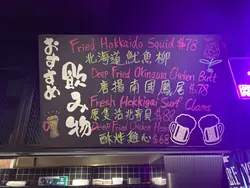 おすすめ
飲み物
Fried Hokkaido Squid $78
北海道魷魚柳
Deep Fried Okinawa Chicken Butt
唐揚南國鳳尾 $78
Fresh Hokkigai Surf Clams
原隻活北寄貝 $88
Deep Fried Chicken
酥炸雞心 $68